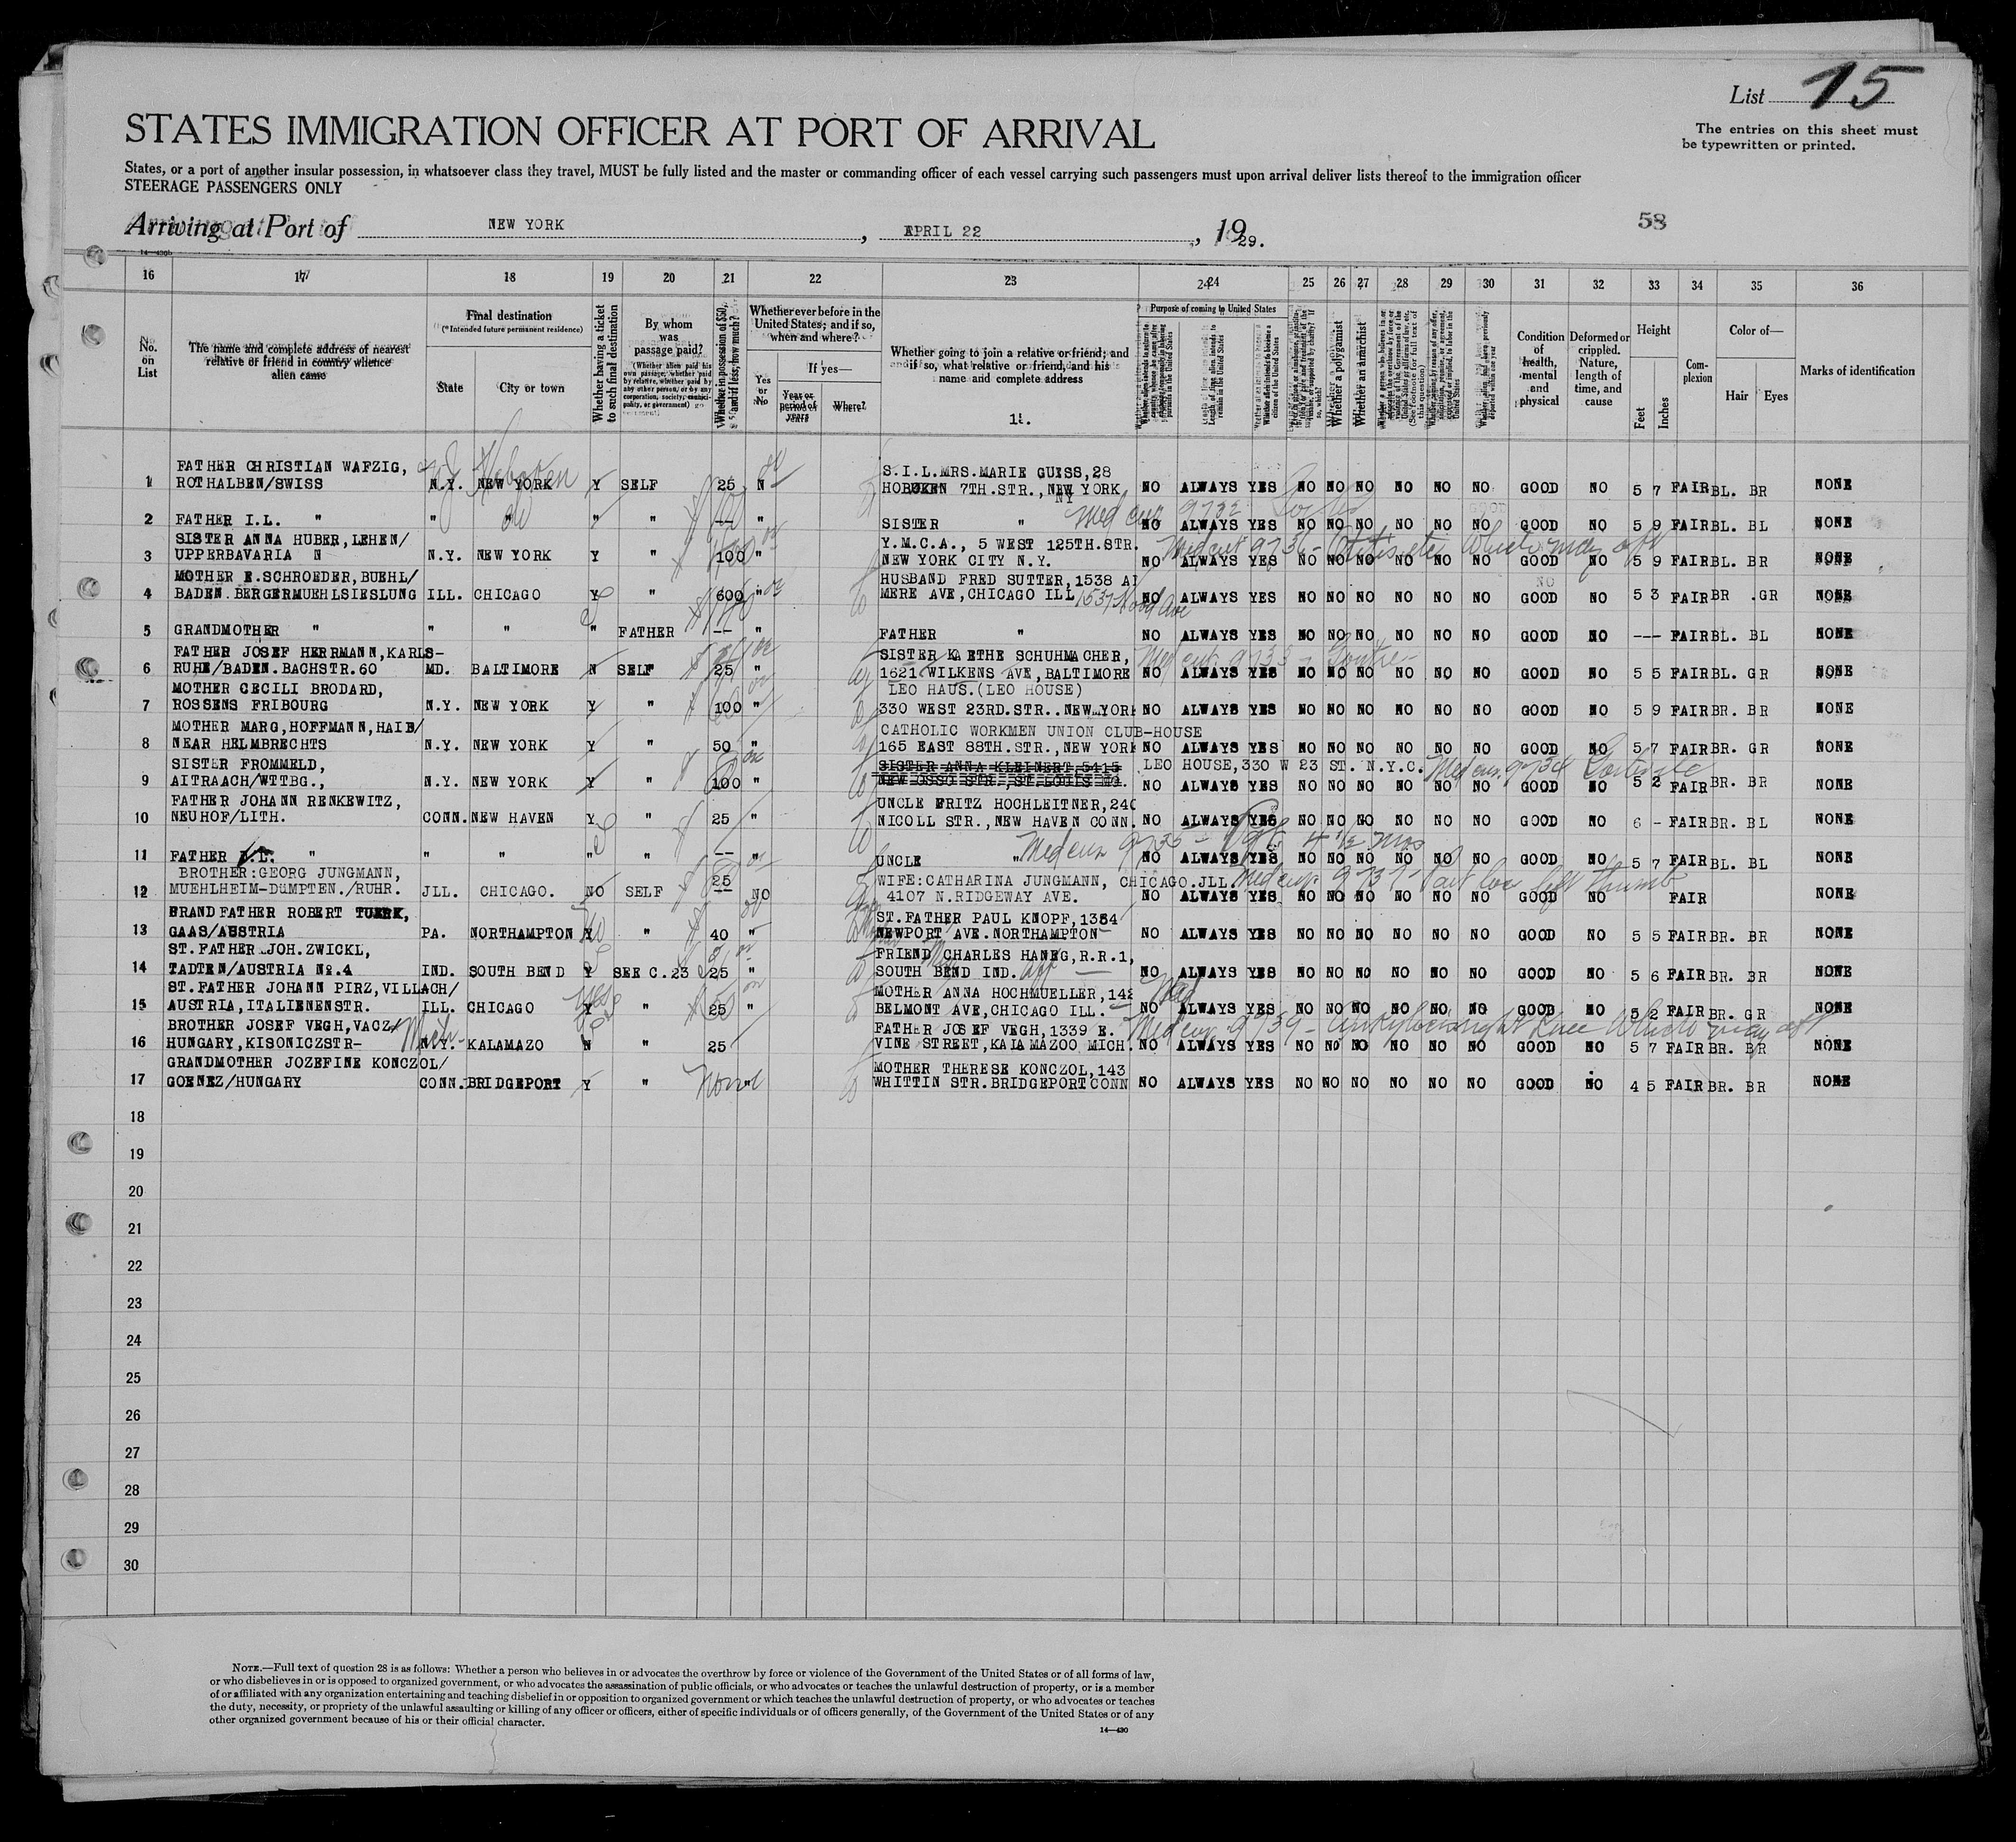 List 15
The entries on this sheet must
be typewritten or printed.
STATES IMMIGRATION OFFICER AT PORT OF ARRIVAL
States, or a port of another insular possession, in whatsoever class they travel, MUST be fully listed and the master or commanding officer of each vessel carrying such passengers must upon arrival deliver lists thereof to the immigration officer
STEERAGE PASSENGERS ONLY
Arriving at Port of NEW YORK, APRIL 22, 1929.
58
16 17 18 19 20 21 22 23 24 25 26 27 28 29 30 31 32 33 34 35 36
No. on List
The name and complete address of nearest relative or friend in country whence alien came
Final destination
(*Intended future permanent residence)
State
City or town
Whether having a ticket to such final destination
By whom was passage paid?
(Whether alien paid his own passage, whether paid by relative, whether paid by any other person, or by any corporation, society, municipality, or government)
Whether in possession of $50, and if less, how much?
Whether ever before in the United States; and if so, when and where?
Yes or No
If yes—
Year or period of years
Where?
Whether going to join a relative or friend; and if so, what relative or friend, and his name and complete address
Purpose of coming to United States
Length of time alien intends to remain in the United States
Whether a polygamist
Whether an anarchist
Condition of health, mental and physical
Deformed or crippled. Nature, length of time, and cause
Height
Feet
Inches
Complexion
Color of—
Hair
Eyes
Marks of identification
FATHER CHRISTIAN WAFZIG, Hoboken S.I.L.MRS.MARIE GUISS,28
1 ROTHALBEN/SWISS N.Y. NEW YORK Y SELF 25 N HOBOKEN 7TH.STR.,NEW YORK NO ALWAYS YES NO NO NO NO NO NO GOOD NO 5 7 FAIR BL. BR NONE
NY
2 FATHER I.L. " " " " " -- " SISTER " Med cert 9732 NO ALWAYS YES NO NO NO NO NO NO GOOD NO 5 9 FAIR BL. BL NONE
SISTER ANNA HUBER,LEHEN/ Y.M.C.A., 5 WEST 125TH.STR. Med cert 9736 - Otitis etc which may aff
3 UPPERBAVARIA N N.Y. NEW YORK Y " 100 " NEW YORK CITY N.Y. NO ALWAYS YES NO NO NO NO NO NO GOOD NO 5 9 FAIR BL. BR NONE
MOTHER E.SCHROEDER,BUEHL/ HUSBAND FRED SUTTER,1538 A
4 BADEN.BERGERMUEHLSIESLUNG ILL. CHICAGO Y " 600 " MERE AVE,CHICAGO ILL NO ALWAYS YES NO NO NO NO NO NO GOOD NO 5 3 FAIR BR .GR NONE
5 GRANDMOTHER " " " " FATHER -- " FATHER " NO ALWAYS YES NO NO NO NO NO NO GOOD NO --- FAIR BL. BL NONE
FATHER JOSEF HERRMANN,KARLS- SISTER KAETHE SCHUHMACHER, Med cert 9733 -
6 RUHE/BADEN.BACHSTR.60 MD. BALTIMORE N SELF 25 " 1621 WILKENS AVE,BALTIMORE NO ALWAYS YES NO NO NO NO NO NO GOOD NO 5 5 FAIR BL. GR NONE
MOTHER CECILI BRODARD, LEO HAUS.(LEO HOUSE)
7 ROSSENS FRIBOURG N.Y. NEW YORK Y " 100 " 330 WEST 23RD.STR..NEW YORK NO ALWAYS YES NO NO NO NO NO NO GOOD NO 5 9 FAIR BR. BR NONE
MOTHER MARG,HOFFMANN,HAIB/ CATHOLIC WORKMEN UNION CLUB-HOUSE
8 NEAR HELMBRECHTS N.Y. NEW YORK Y " 50 " 165 EAST 88TH.STR.,NEW YORK NO ALWAYS YES NO NO NO NO NO NO GOOD NO 5 7 FAIR BR. GR NONE
SISTER FROMMELD, SISTER ANNA KLEINERT,5415 LEO HOUSE,330 W 23 ST. N.Y.C. Med cert 9734
9 AITRAACH/WTTBG., N.Y. NEW YORK Y " 100 " NEW OSSO STR.,ST.LOUIS MO. NO ALWAYS YES NO NO NO NO NO NO GOOD NO 5 2 FAIR BR. BR NONE
FATHER JOHANN RENKEWITZ, UNCLE FRITZ HOCHLEITNER,240
10 NEUHOF/LITH. CONN. NEW HAVEN Y " 25 " NICOLL STR.,NEW HAVEN CONN. NO ALWAYS YES NO NO NO NO NO NO GOOD NO 6 - FAIR BR. BL NONE
11 FATHER I.L. " " " " " -- " UNCLE " Med cert 9735 - 4 1/2 mos NO ALWAYS YES NO NO NO NO NO NO GOOD NO 5 7 FAIR BL. BL NONE
BROTHER:GEORG JUNGMANN, 25 WIFE:CATHARINA JUNGMANN, CHICAGO.JLL. Med cert 9737 - Part loss left thumb
12 MUEHLHEIM-DUMPTEN./RUHR. JLL. CHICAGO. NO SELF -- NO 4107 N.RIDGEWAY AVE. NO ALWAYS YES NO NO NO NO NO NO GOOD NO FAIR NONE
GRANDFATHER ROBERT TUERK, ST.FATHER PAUL KNOPF,1384
13 GAAS/AUSTRIA PA. NORTHAMPTON Y " 40 " NEWPORT AVE.NORTHAMPTON NO ALWAYS YES NO NO NO NO NO NO GOOD NO 5 5 FAIR BR. BR NONE
ST.FATHER JOH.ZWICKL, FRIEND CHARLES HANEG,R.R.1,
14 TADTEN/AUSTRIA No.4 IND. SOUTH BEND Y SEE C.23 25 " SOUTH BEND IND. NO ALWAYS YES NO NO NO NO NO NO GOOD NO 5 6 FAIR BR. BR NONE
ST.FATHER JOHANN PIRZ,VILLACH/ MOTHER ANNA HOCHMUELLER,142
15 AUSTRIA,ITALIENENSTR. ILL. CHICAGO Y " 25 " BELMONT AVE,CHICAGO ILL. NO ALWAYS YES NO NO NO NO NO NO GOOD NO 5 2 FAIR BR. GR NONE
BROTHER JOSEF VEGH,VACZ Mich FATHER JOSEF VEGH,1339 E. Med cert 9739 - Ankylosis right knee which may aff
16 HUNGARY,KISONICZSTR- N.Y. KALAMAZO N " 25 VINE STREET,KALAMAZOO MICH. NO ALWAYS YES NO NO NO NO NO NO GOOD NO 5 7 FAIR BR. BR NONE
GRANDMOTHER JOZEFINE KONCZOL/ MOTHER THERESE KONCZOL,143
17 GOENEZ/HUNGARY CONN. BRIDGEPORT Y " None " WHITTIN STR.BRIDGEPORT CONN NO ALWAYS YES NO NO NO NO NO NO GOOD NO 4 5 FAIR BR. BR NONE
18
19
20
21
22
23
24
25
26
27
28
29
30
NOTE.—Full text of question 28 is as follows: Whether a person who believes in or advocates the overthrow by force or violence of the Government of the United States or of all forms of law,
or who disbelieves in or is opposed to organized government, or who advocates the assassination of public officials, or who advocates or teaches the unlawful destruction of property, or is a member
of or affiliated with any organization entertaining and teaching disbelief in or opposition to organized government or which teaches the unlawful destruction of property, or who advocates or teaches
the duty, necessity, or propriety of the unlawful assaulting or killing of any officer or officers, either of specific individuals or of officers generally, of the Government of the United States or of any
other organized government because of his or their official character.
14—430